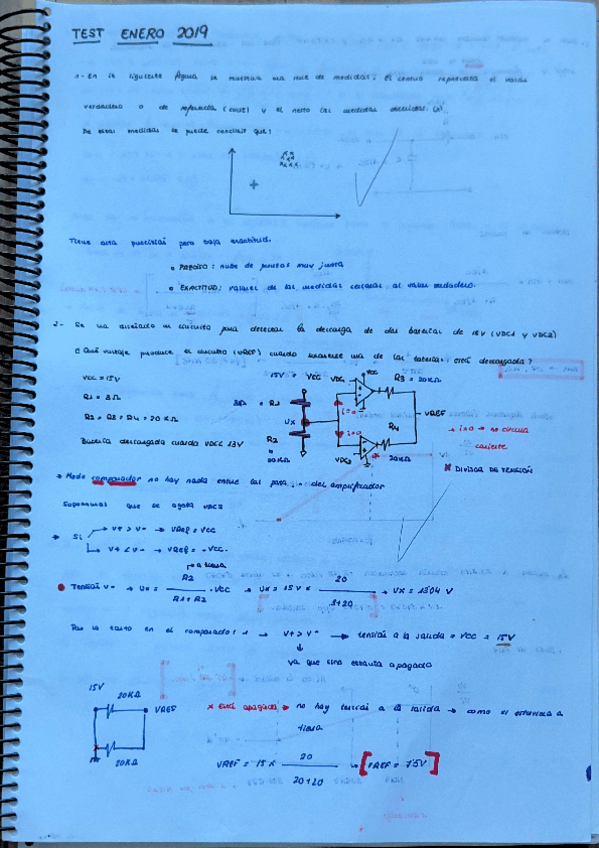 TEST ENERO 2019
1.- En la siguiente figura se muestra una nube de medidas. El centro representa el valor
verdadero o de referencia (cruz) y el resto las medidas obtenidas. (x).
De estas medidas se puede concluir que:
Tiene alta precisión pero baja exactitud.
• PRECISO: nube de puntos muy junta
• EXACTITUD: valores de las medidas cercanas al valor verdadero.
2.- Se ha diseñado un circuito para detectar la descarga de dos baterías de 15V (VDC1 y VDC2)
¿Qué voltaje produce el circuito (VREF) cuando una de las baterías está descargada?
VCC = 15V
R1 = 3Ω
R2 = R3 = R4 = 20KΩ
Batería descargada cuando VDC < 13V
15V = VCC
VDC1
VCC
R3 = 20KΩ
3Ω = R1
i=0
UX
VREF
R4
R2
i=0
20KΩ
VDC2
20KΩ
→ i=0 → no circula
corriente
* DIVISOR DE TENSIÓN
→ Modo comparador no hay nada entre las patas del amplificador
Suponemos que se agota VDC2
* Si
V+ > V- → VREF = VCC
V+ < V- → VREF = -VCC.
→ a tierra
• Tensión V- → UX = R2 / R1+R2 · VCC → UX = 15V x 20 / 3+20 → UX = 13'04 V
Por lo tanto en el comparador 1 → V+ > V- → tensión a la salida = VCC = 15V
↓
ya que sino estaría apagado
15V
20KΩ
VREF
20KΩ
* Está apagado → no hay tensión a la salida → como si estuviera a
tierra
VREF = 15 x 20 / 20+20 → [VREF = 7'5V]